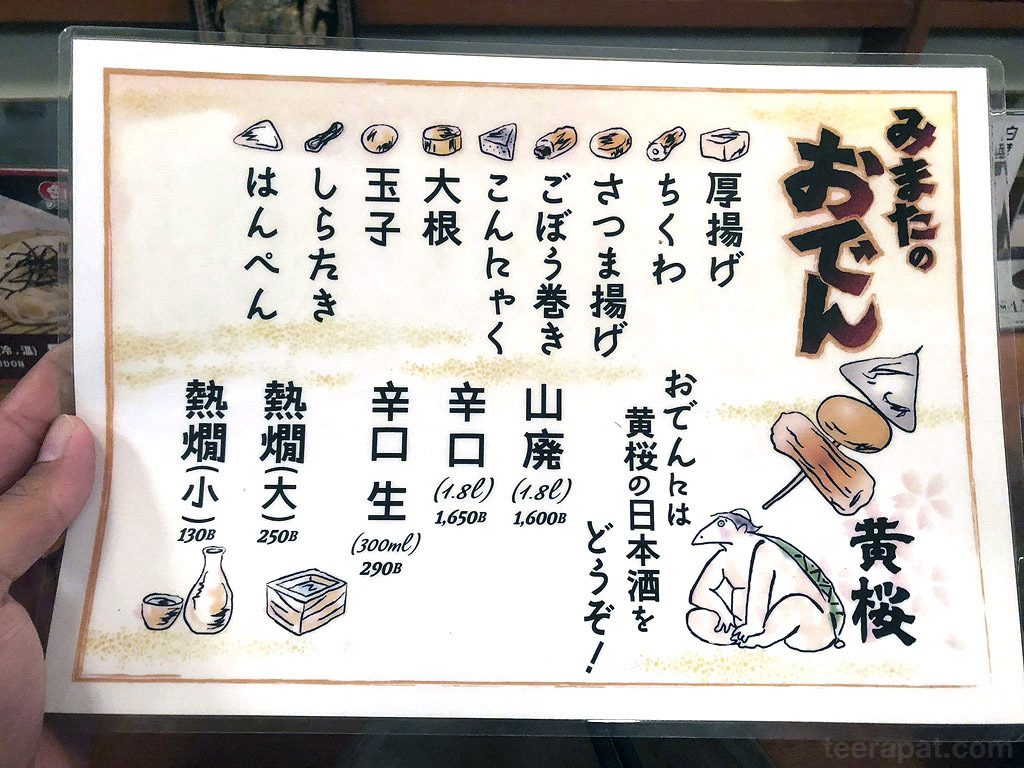 みまたの
おでん
厚揚げ
ちくわ
さつま揚げ
ごぼう巻き
こんにゃく
大根
玉子
しらたき
はんぺん
黄桜
おでんには
黄桜の日本酒を
どうぞ!
山廃
(1.8l)
1,600B
辛口
(1.8l)
1,650B
辛口 生
(300ml)
290B
熱燗(大)
250B
熱燗(小)
130B
teerapat.com